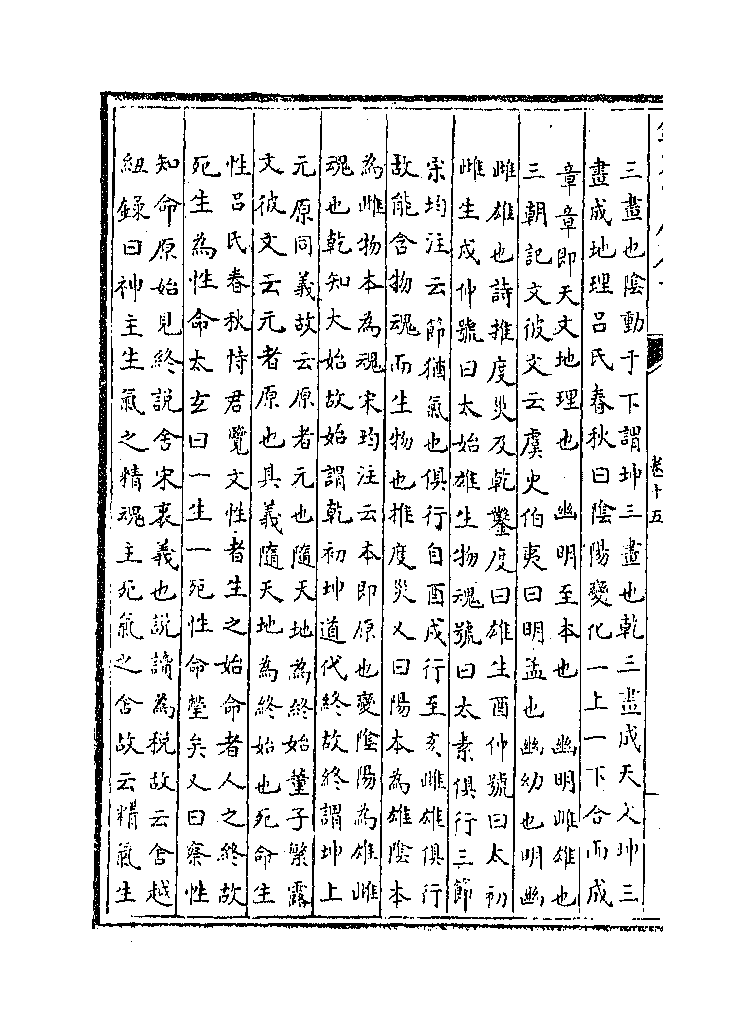 三畫也陰動于下謂坤三畫也乾三畫成天文坤三
畫成地理呂氏春秋曰陰陽變化一上一下合而成
章章即天文地理也　幽明至本也　幽明雌雄也
三朝記文彼文云虞史伯夷曰明孟也幽幼也明幽
雌雄也詩推度災及乾鑿度曰雄生酉仲號曰太初
雌生戌仲號曰太始雄生物魂號曰太素俱行三節
宋均注云節猶氣也俱行自酉戌行至亥雌雄俱行
故能含物魂而生物也推度災又曰陽本為雄陰本
為雌物本為魂宋均注云本即原也變陰陽為雄雌
魂也乾知大始故始謂乾初坤道代終故終謂坤上
元原同義故云原者元也隨天地為終始董子繁露
文彼文云元者原也其義隨天地為終始也死命生
性呂氏春秋恃君覽文性者生之始命者人之終故
死生為性命太玄曰一生一死性命瑩矣又曰察性
知命原始見終說舍宋衷義也說讀為稅故云舍越
紐錄曰神主生氣之精魂主死氣之舍故云精氣生
卷十五